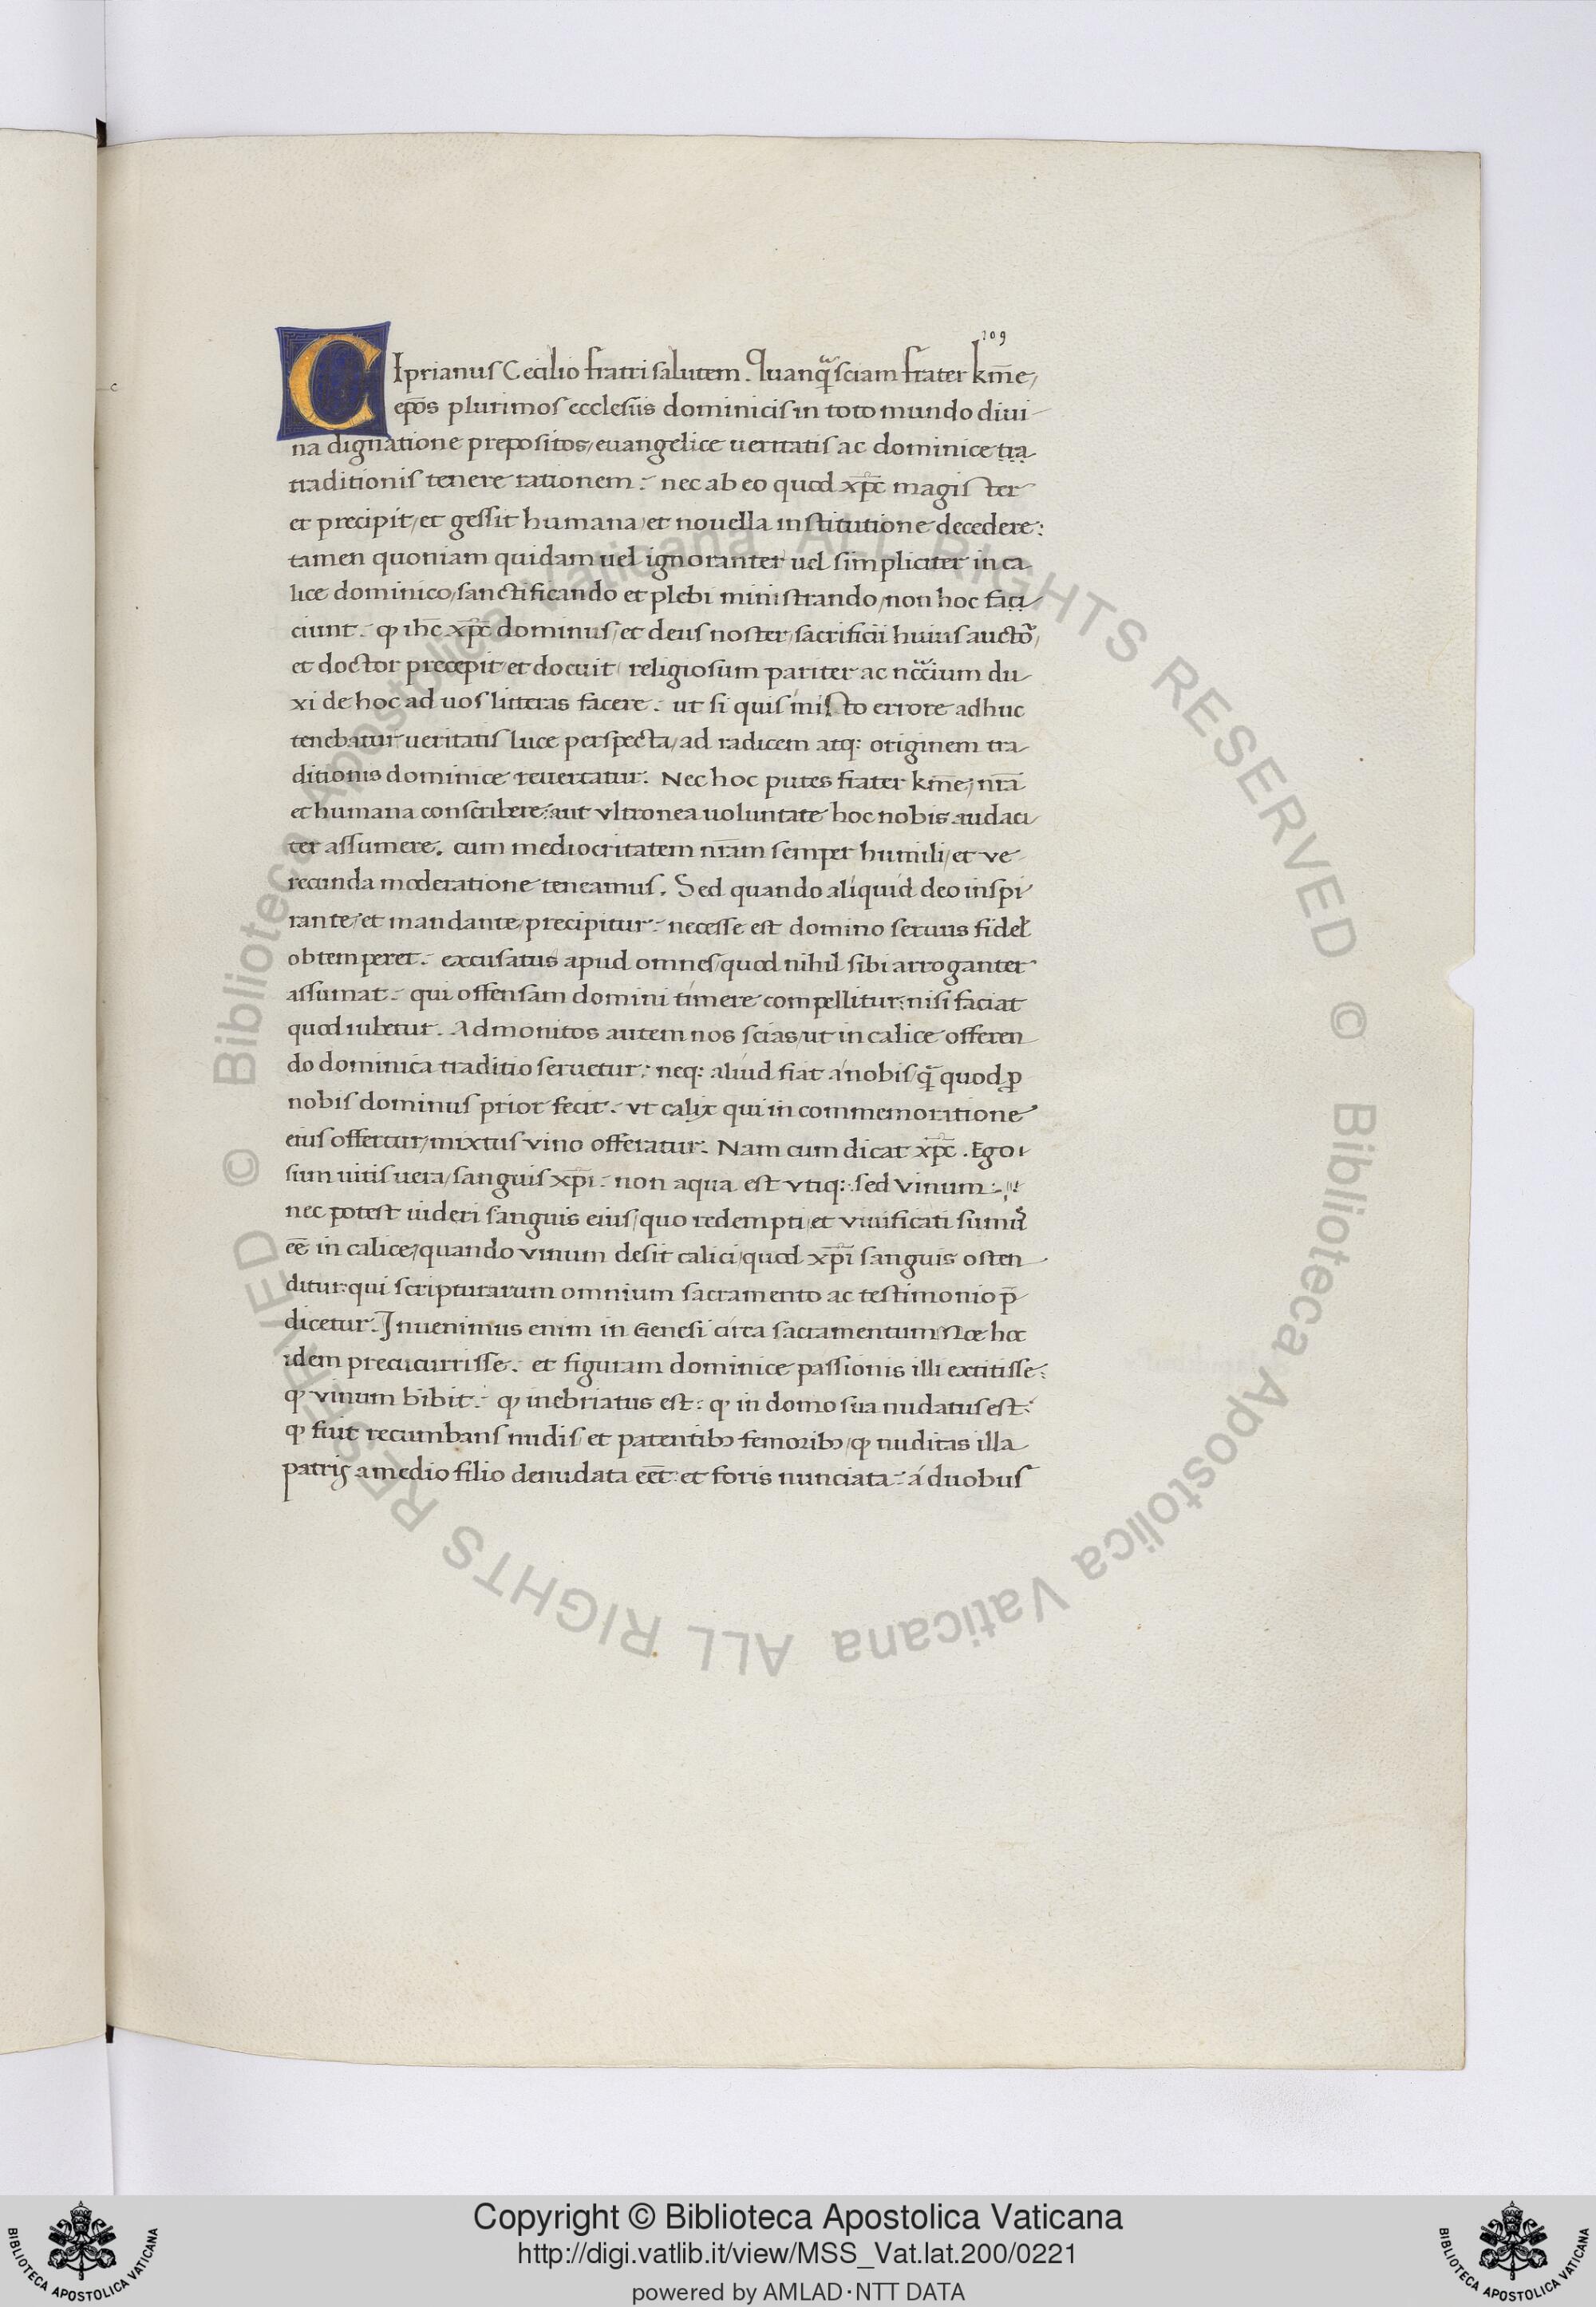 209
CIprianus Cecilio fratri salutem. Quanqᷓ sciam frater km̅e,
ep̅os plurimos ecclesiis dominicis in toto mundo diui
na dignatione prepositos, euangelice ueritatis ac dominice tra
traditionis tenere rationem: nec ab eo quod xp̅c magister
et precipit, et gessit humana, et nouella institutione decedere:
tamen quoniam quidam uel ignoranter uel simpliciter in ca
lice dominico, sanctificando et plebi ministrando, non hoc faci
ciunt: ꝙ ih̅c xp̅c dominus, et deus noster, sacrificii huius aucto᷑,
et doctor precepit, et docuit, religiosum pariter ac ncc̅ium du
xi de hoc ad uos litteras facere: ut si quis in isto errore adhuc
tenebatur ueritatis luce perspecta, ad radicem atq: originem tra
ditionis dominice reuertatur. Nec hoc putes frater km̅e, nr̅a
et humana conscribere: aut vltronea uoluntate hoc nobis audaci
ter assumere. cum mediocritatem nr̅am semper humili, et ve
recunda moderatione teneamus. Sed quando aliquid deo inspi
rante, et mandante, precipitur: necesse est domino seruus fidel̕
obtemperet: excusatus apud omnes, quod nihil sibi arroganter
assumat: qui offensam domini timere compellitur: nisi faciat
quod iubetur. Admonitos autem nos scias, ut in calice offeren
do dominica traditio seruetur: neq: aliud fiat á nobis, q̅ quod ꝓ
nobis dominus prior fecit: vt calix qui in commemoratione
eius offertur, mixtus vino offeratur. Nam cum dicat xp̅c. Ego
sum uitis uera, sanguis xp̅i: non aqua est vtiq: sed vinum:
nec potest uideri sanguis eius, quo redempti, et viuificati sumꝰ
ee̅ in calice, quando vinum desit calici, quod xp̅i sanguis osten
ditur: qui scripturarum omnium sacramento ac testimonio p̅
dicetur. Inuenimus enim in Genesi circa sacramentum Noe hoc
idem precucurrisse: et figuram dominice passionis illi extitisse:
ꝙ vinum bibit: ꝙ inebriatus est: ꝙ in domo sua nudatus est:
ꝙ fuit recumbans nudis, et patentibꝫ femoribꝫ, ꝙ nuditas illa
patris a medio filio denudata ee̅t: et foris nunciata: á duobus
© Biblioteca Apostolica Vaticana ALL RIGHTS RESERVED
© Biblioteca Apostolica Vaticana ALL RIGHTS RESERVED
Copyright © Biblioteca Apostolica Vaticana
http://digi.vatlib.it/view/MSS_Vat.lat.200/0221
powered by AMLAD·NTT DATA
BIBLIOTECA APOSTOLICA VATICANA
BIBLIOTECA APOSTOLICA VATICANA